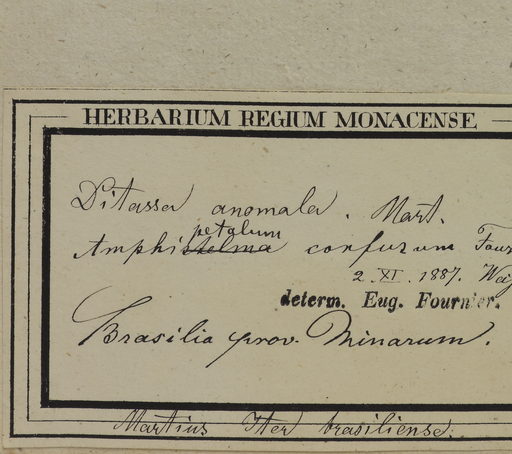 HERBARIUM REGIUM MONACENSE
Ditassa anomala. Mart.
petalum
Amphistelma confusum Four
2. XI. 1887.
determ. Eug. Fournier.
Brasilia prov. Minarum.
Martius Iter brasiliense.